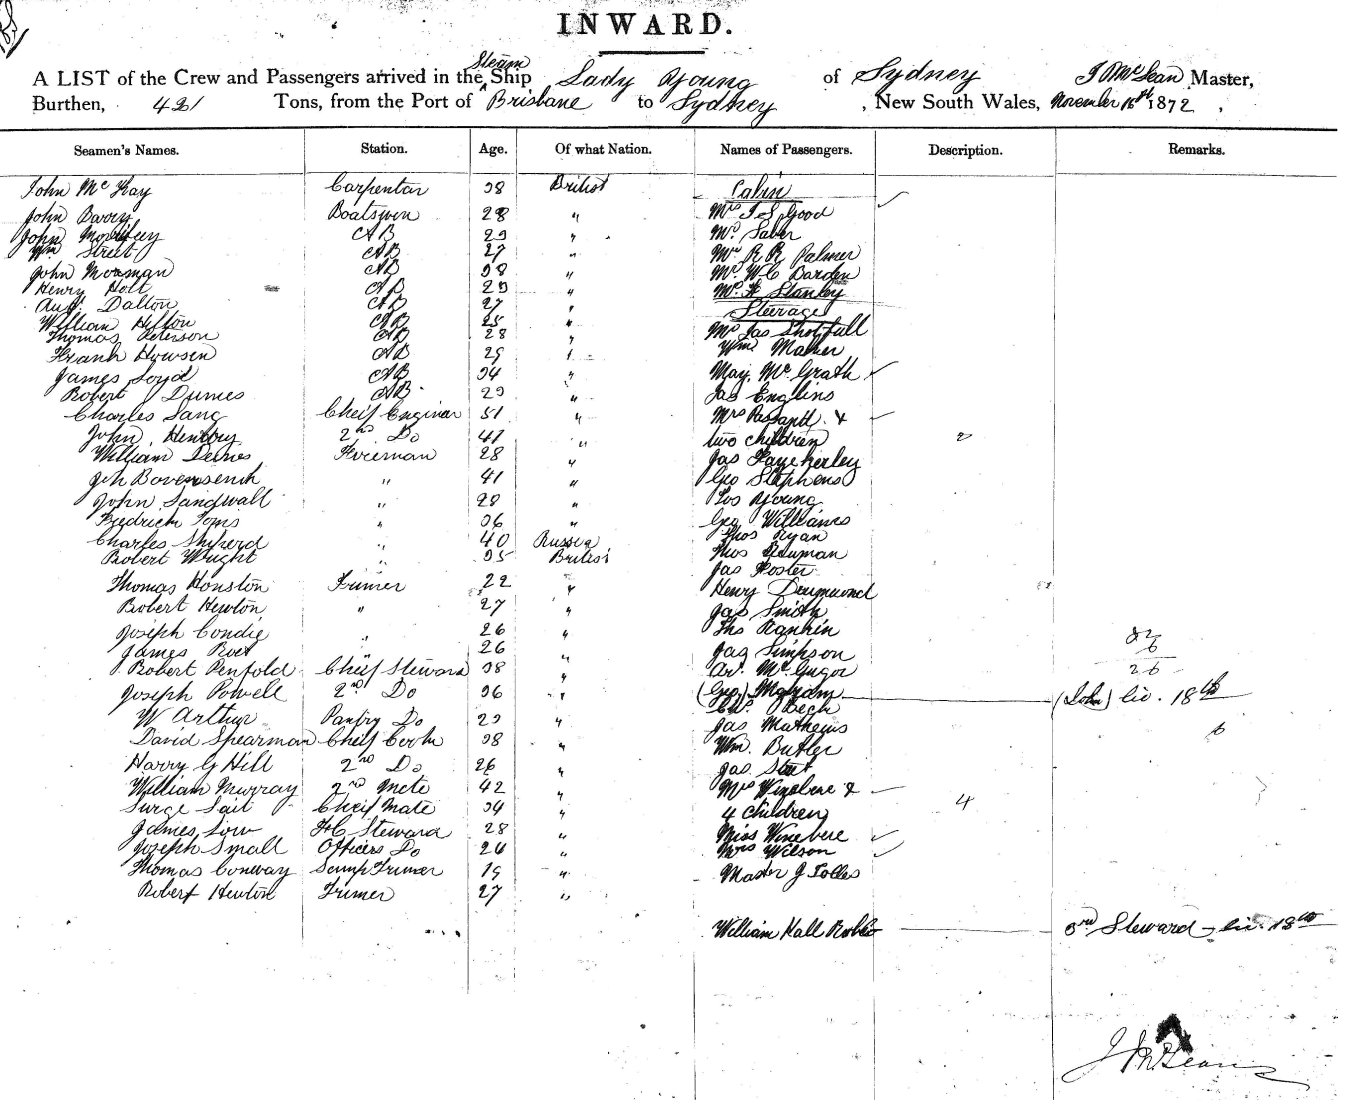 INWARD.
A LIST of the Crew and Passengers arrived in the Steam Ship Lady Young of Sydney J McLean Master,
Burthen, 421 Tons, from the Port of Brisbane to Sydney , New South Wales, November 16th 1872 ,
Seamen's Names. Station. Age. Of what Nation. Names of Passengers. Description. Remarks.
John McKay Carpenter 38 British Cabin
John Barry Boatswen 28 " Mrs J S Good
John Morrissey AB 29 " Mr Saber
Wm Street AB 27 " Mr R R Palmer
John Moasman AB 38 " Mr W C Barden
Henry Holt AB 29 " Mr H Stanley
Augt Dalton AB 27 " Steerage
William Hilton AB 25 " Mr Jas Shotfull
Thomas Peterson AB 28 " Wm Maher
Frank Howsen AB 29 "
James Loyd AB 34 " May McGrath
Robert Dumes AB 29 " Jas Englins
Charles Lang Cheif Enginar 51 " Mrs &
John Henbry 2nd Do 41 " two children 2
William Deines Fireman 28 " Jas
Bovensench " 41 " Geo Stephens
John Sandwall " 28 " Young
Fredrich Toms " 36 " Geo Williams
Charles Shiperd " 40 Russia Thos Ryan
Robert Wright " 35 British Thos
Jas Foster
Thomas Houston Trimer 22 " Henry Drumond
Robert Hewton " 27 " Jas Smith
Joseph Condie " 26 " Ths Rankin
James " 26 " Jas Simpson 26
Robert Penfold Chief Steward 38 " Ar. McGregor
Joseph Powell 2nd Do 36 " (Geo) (John) liv. 18th
W Arthur Pantry Do 29 " Chs Beck
Jas Mathews
David Spearman Chief Cook 38 " Wm Butler
Harry G Hill 2nd Do 26 " Jas
William Murray 2nd Mate 42 " Mrs Winebere &
Surge Tait Cheif Mate 34 " 4 children 4
James Low F C Steward 28 " Miss Winebere
Joseph Small Officers Do 24 " Mrs Wilson
Thomas Conway Trimer 19 " Master J Tolles
Robert Hewton Trimer 27 "
William Hall 3rd Steward liv. 18th
J McLean